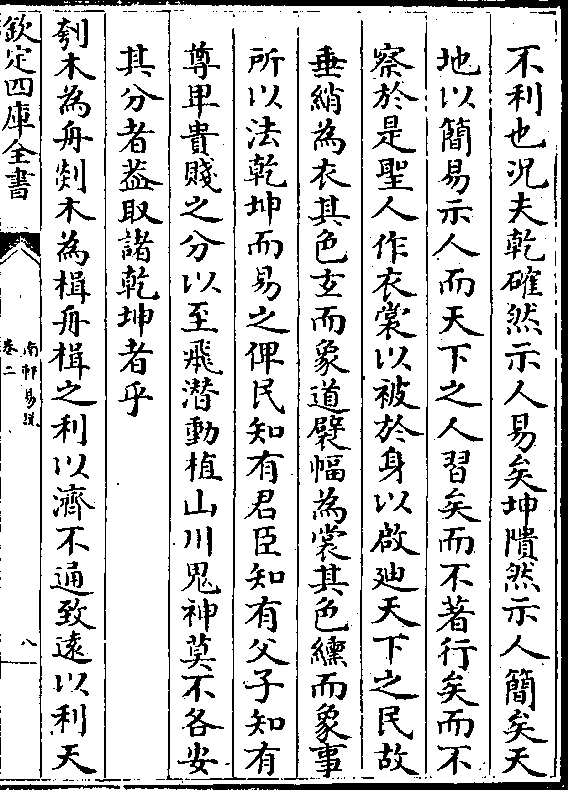 不利也况夫乾確然示人易矣坤隤然示人簡矣天
地以簡易示人而天下之人習矣而不著行矣而不
察於是聖人作衣裳以被於身以啟廸天下之民故
垂綃為衣其色玄而象道襞幅為裳其色纁而象事
所以法乾坤而易之俾民知有君臣知有父子知有
尊卑貴賤之分以至飛潛動植山川鬼神莫不各安
其分者葢取諸乾坤者乎
刳木為舟剡木為楫舟楫之利以濟不通致遠以利天
欽定四庫全書
南軒易說
卷二
八